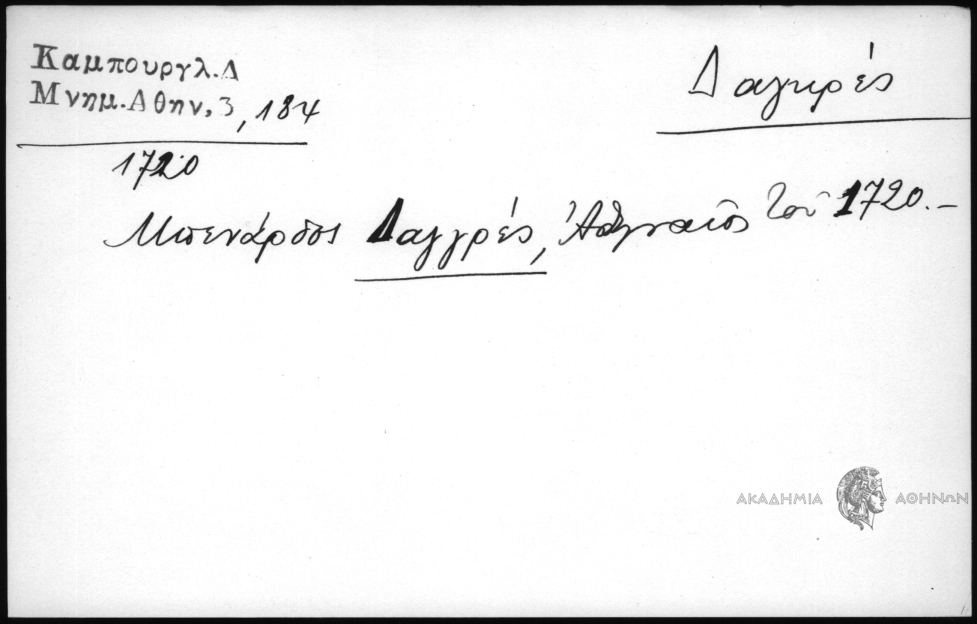 Καμπουργλ.Δ
Μνημ.Αθην,3,184
1720
Δαγκρές
Μπενάρδος Δαγγρές, Ἀθηναῖος τοῦ 1720.—
ΑΚΑΔΗΜΙΑ ΑΘΗΝΩΝ